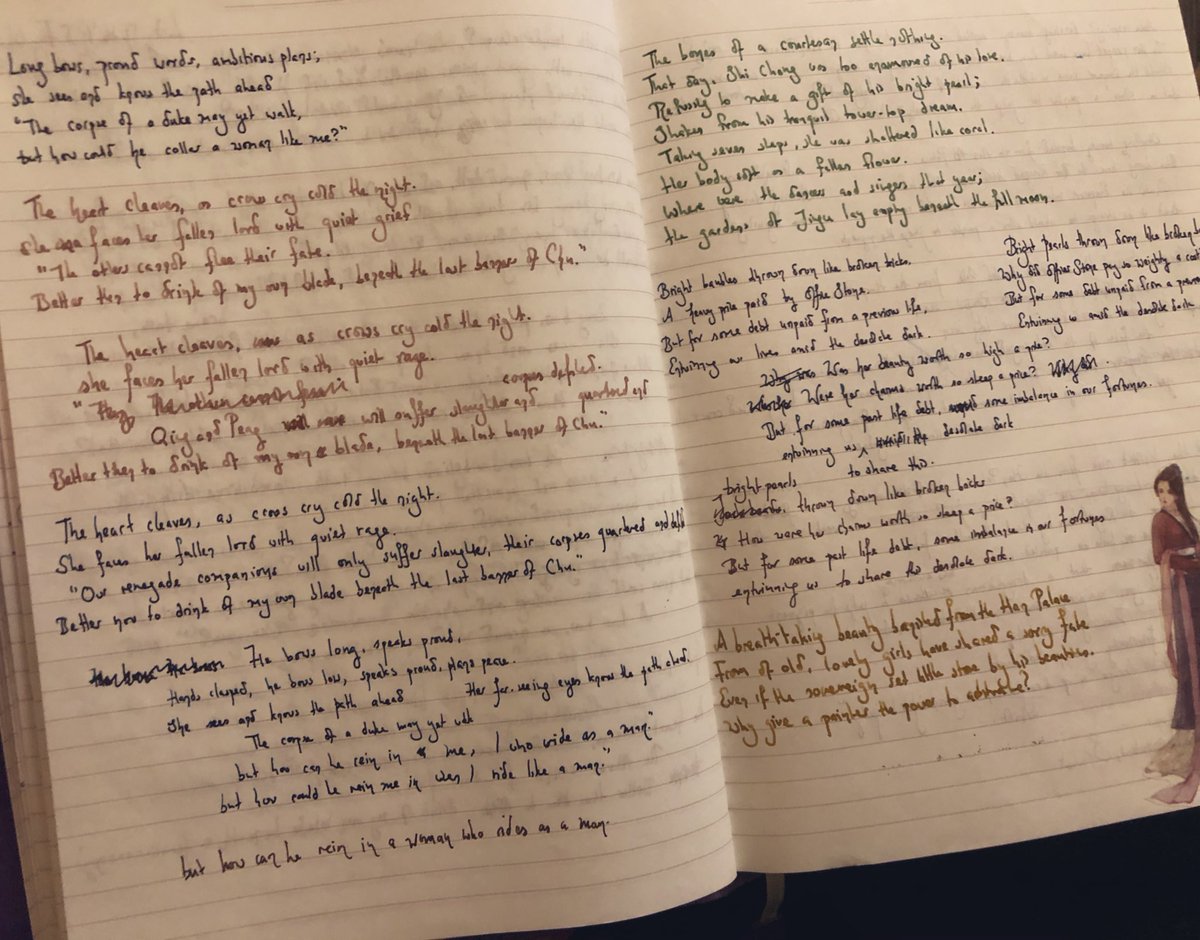 Long bows, proud words, ambitious plans;
she sees and knows the path ahead
"The corpse of a duke may yet walk,
but how could he collar a woman like me?"
The heart cleaves, as crows cry cold the night.
she faces her fallen lord with quiet grief
"The others cannot flee their fate.
Better then to drink of my own blade, beneath the last banner of Chu."
The heart cleaves, as crows cry cold the night.
she faces her fallen lord with quiet rage.
corpses defiled.
Qing and Peng will suffer slaughter and quartered and
Better then to drink of my own blade, beneath the last banner of Chu."
The heart cleaves, as crows cry cold the night.
She faces her fallen lord with quiet rage.
"Our renegade companions will only suffer slaughter, their corpses quartered and
Better now to drink of my own blade beneath the last banner of Chu."
He bows long, speaks proud,
Hands clasped, he bows low, speaks proud, plans peace.
She sees and knows the path ahead Her far-seeing eyes know the path ahead.
The corpse of a duke may yet walk
but how can he rein in me, I who ride as a man."
but how could he rein me in when I ride like a man."
but how can he rein in a woman who rides as a man.
The bones of a courtesan settle nothing.
That day, Shi Chong was too enamoured of his love.
Refusing to make a gift of his bright pearl;
Shaken from his tranquil tower-top dream.
Taking seven steps, she was shattered like coral.
Her body soft as a fallen flower.
Where were the dancers and singers that year;
the gardens of Jingu lay empty beneath the full moon.
Bright baubles thrown down like broken bricks.
A heavy price paid by Office Stone.
But for some debt unpaid from a previous life,
Entwining our lives amid the desolate dark.
Bright pearls thrown down like broken
Why did Office Stone pay so weighty a cost
But for some debt unpaid from a
Entwining us amid the desolate dark
Was her beauty worth so high a price?
Were her charms worth so steep a price?
But for some past life debt, some imbalance in our fortunes.
entwining us desolate dark
to share this.
bright pearls
thrown down like broken bricks
How were her charms worth so steep a price?
But for some past life debt, some imbalance in our fortunes
entwinning us to share this desolate dark.
A breathtaking beauty banished from the Han Palace
From of old, lovely girls have shared a sorry fate
Even if the sovereign set little store by his beauties.
Why give a painter the power to